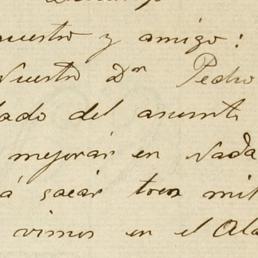 uestro y amigo:
Nuestro Dn Pedro
lado del asunto
mejorár en nada
á sacár tres mil
vimos en el Ala